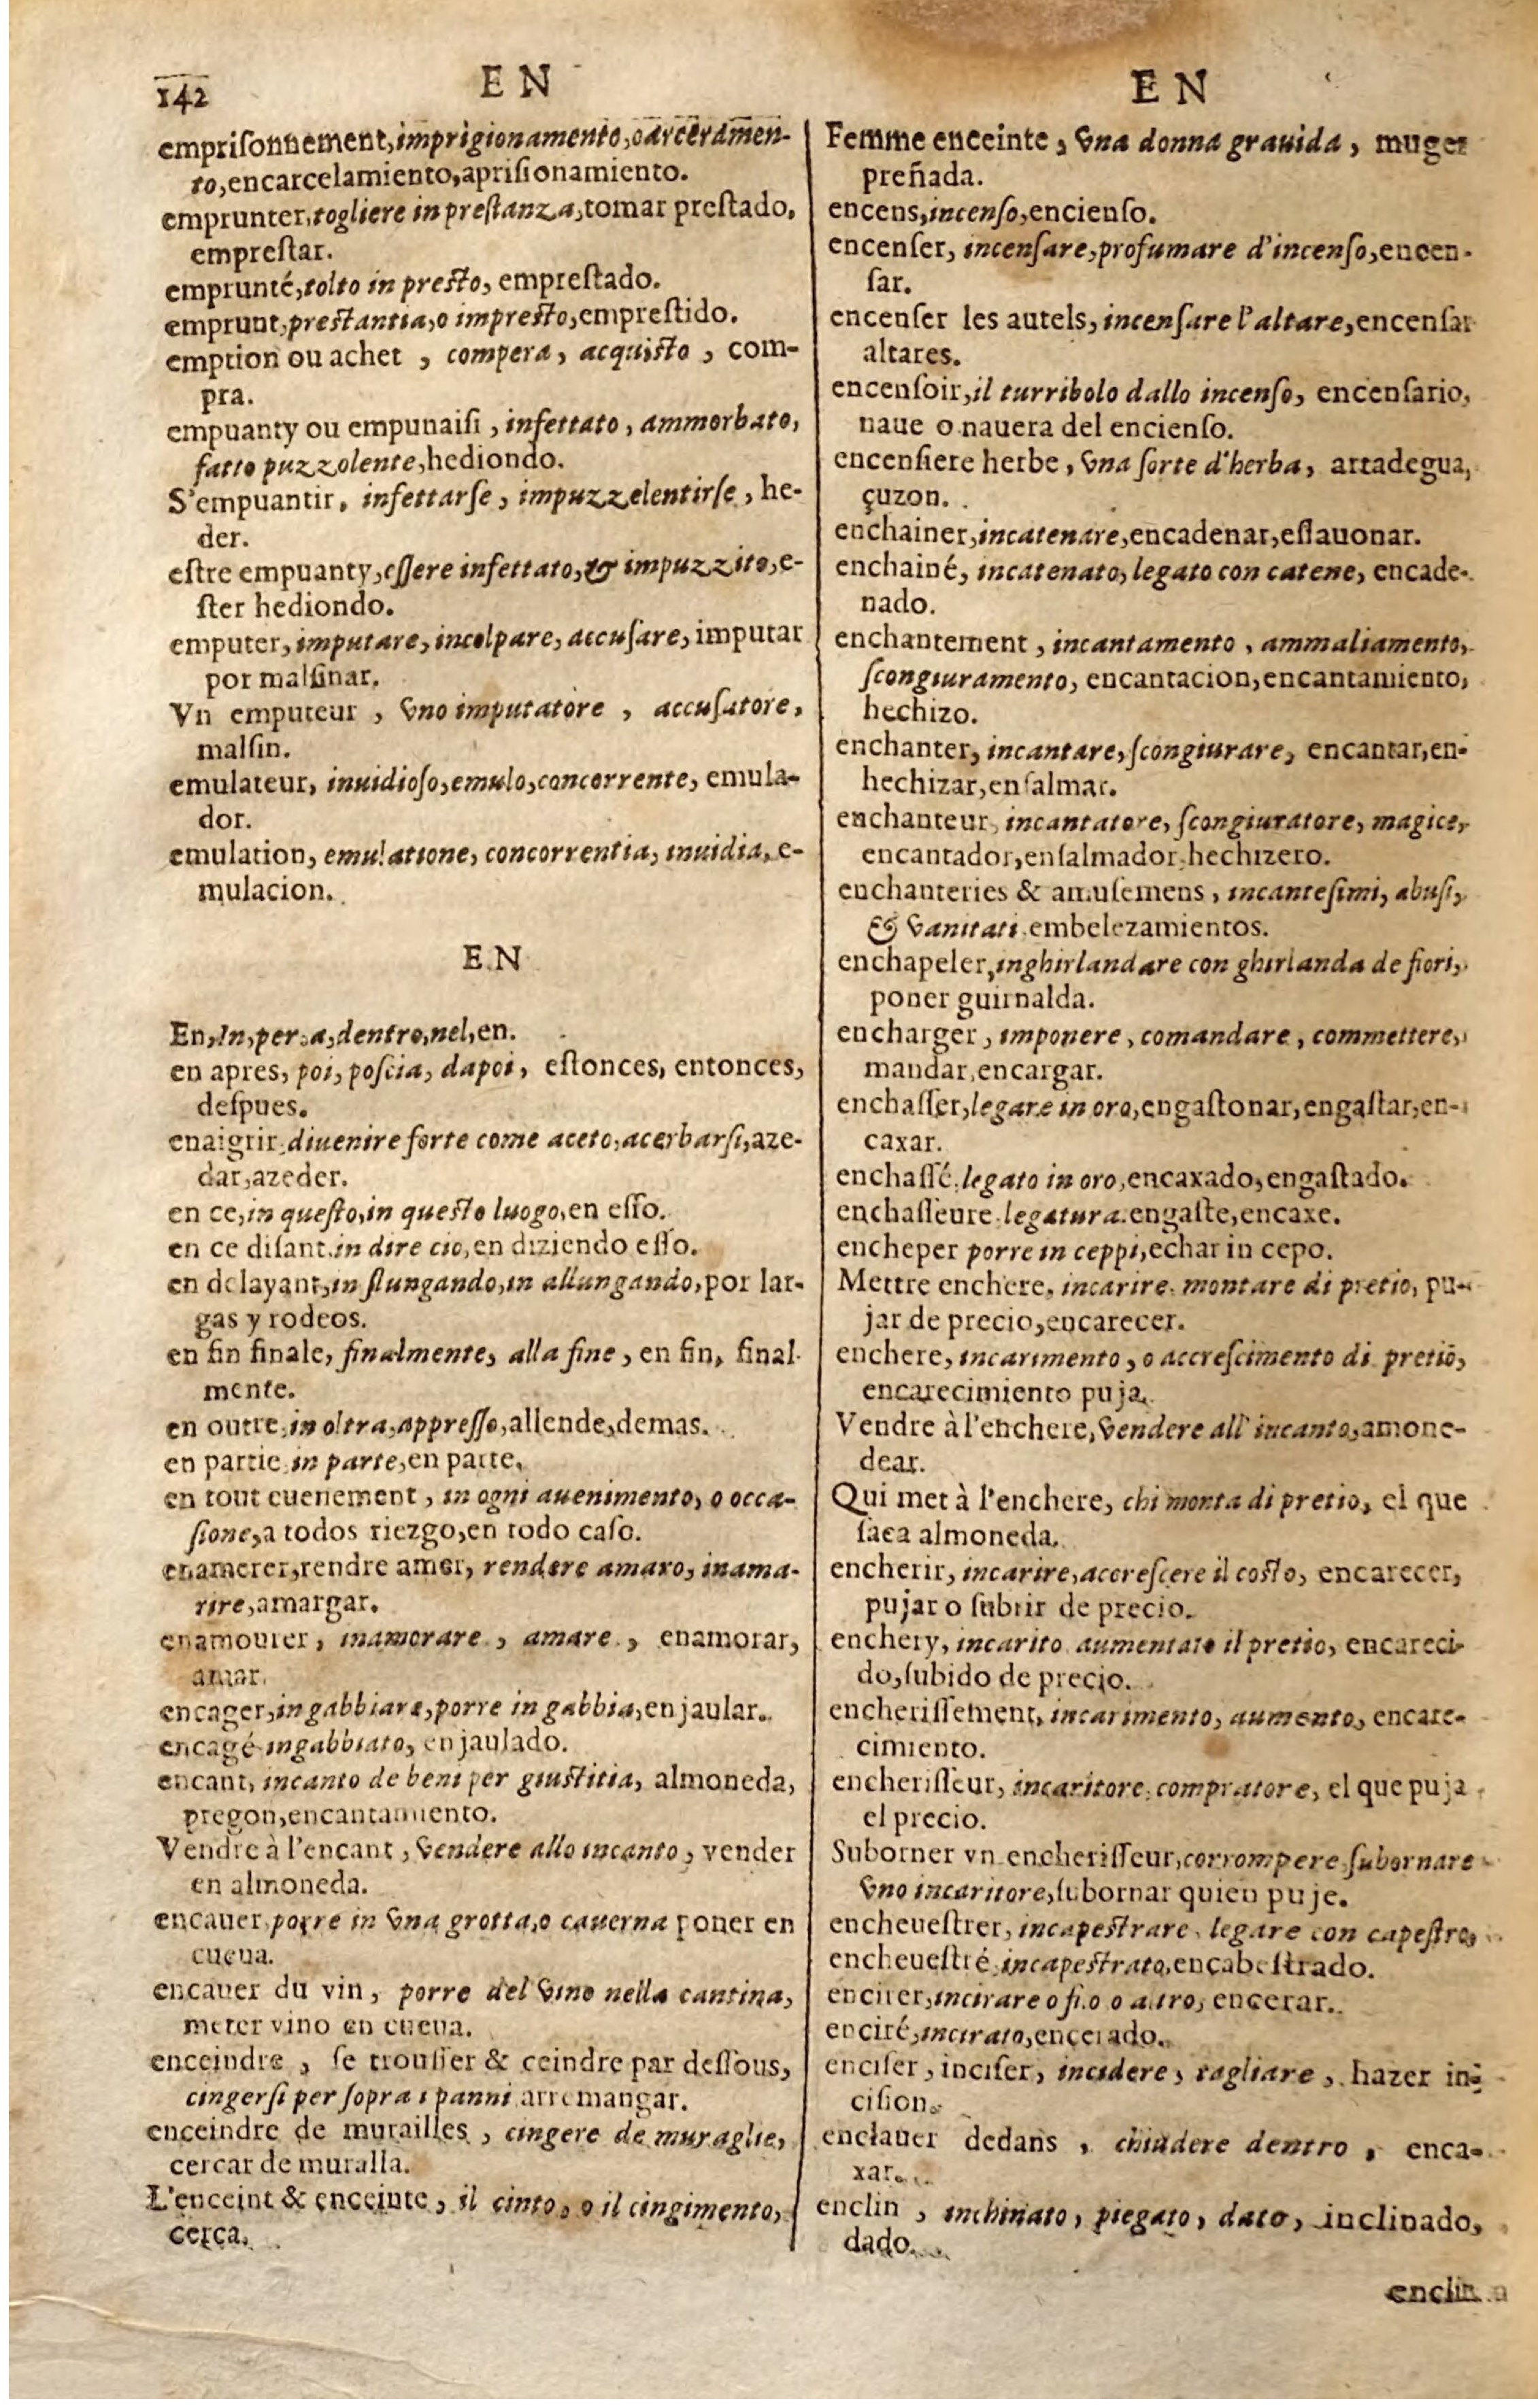 142
EN
EN
empriſonnement, imprigionamento, o arcerdmen-
to, encarcelamiento, apriſionamiento.
emprunter, togliere in preſtanza, tomar preſtado,
empreſtar.
emprunté, tolto in preſto, empreſtado.
emprunt, preſtantia, o impreſto, empreſtido.
emption ou achet, compera, acquiſto, com-
pra.
empuanty ou empunaiſi, infettato, ammorbato,
fatto puzzolente, hediondo.
S'empuantir, infettarſe, impuzzelentirſe, he-
der.
eſtre empuanty, eſſere infettato, & impuzzito, e-
ſter hediondo.
emputer, imputare, incolpare, accuſare, imputar
por malſinar.
Vn emputeur, vno imputatore, accuſatore,
malſin.
emulateur, inuidioſo, emulo, concorrente, emula-
dor.
emulation, emulatione, concorrentia, inuidia, e-
mulacion.
EN
En, In, per, a, dentro, nel, en.
en apres, poi, poſcia, dapoi, eſtonces, entonces,
deſpues.
enaigrir, diuenire forte come aceto, acerbarſi, aze-
dar, azeder.
en ce, in queſto, in queſto luogo, en eſſo.
en ce diſant, in dire cio, en diziendo eſſo.
en delayant, in ſlungando, in allungando, por lar-
gas y rodeos.
en fin finale, finalmente, alla fine, en fin, final-
mente.
en outre, in oltra, appreſſo, allende, demas.
en partie, in parte, en parte.
en tout euenement, in ogni auenimento, o occa-
ſione, a todos riezgo, en todo caſo.
enamerer, rendre amer, rendere amaro, inama-
rire, amargar.
enamourer, inamorare, amare, enamorar,
amar.
encager, ingabbiare, porre in gabbia, enjaular.
encagé ingabbiato, enjaulado.
encant, incanto de beni per giuſtitia, almoneda,
pregon, encantamiento.
Vendre à l'encant, vendere allo incanto, vender
en almoneda.
encauer, porre in vna grotta, o cauerna poner en
cueua.
encauer du vin, porre del vino nella cantina,
meter vino en cueua.
enceindre, ſe trouſſer & ceindre par deſſous,
cingerſi per ſopra i panni arremangar.
enceindre de murailles, cingere de muraglie,
cercar de muralla.
L'enceint & enceinte, il cinto, o il cingimento,
cerca.
Femme enceinte, vna donna grauida, muger
preñada.
encens, incenſo, encienſo.
encenſer, incenſare, profumare d'incenſo, encen-
ſar.
encenſer les autels, incenſare l'altare, encenſar
altares.
encenſoir, il turribolo dallo incenſo, encenſario,
naue o nauera del encienſo.
encenſiere herbe, vna ſorte d'herba, artadegua,
çuzon.
enchainer, incatenare, encadenar, eſlauonar.
enchainé, incatenato, legato con catene, encade-
nado.
enchantement, incantamento, ammaliamento,
ſcongiuramento, encantacion, encantamiento,
hechizo.
enchanter, incantare, ſcongiurare, encantar, en-
hechizar, enſalmar.
enchanteur, incantatore, ſcongiuratore, magice,
encantador, enſalmador, hechizero.
enchanteries & amuſemens, incanteſimi, abuſi,
& vanitati embelezamientos.
enchapeler, inghirlandare con ghirlanda de fiori,
poner guirnalda.
encharger, imponere, comandare, commettere,
mandar, encargar.
enchaſſer, legare in oro, engaſtonar, engaſtar, en-
caxar.
enchaſſé, legato in oro, encaxado, engaſtado.
enchaſſeure, legatura, engaſte, encaxe.
encheper porre in ceppi, echar in cepo.
Mettre enchere, incarire, montare di pretio, pu-
jar de precio, encarecer.
enchere, incarimento, o accreſcimento di pretio,
encarecimiento puja.
Vendre à l'enchere, vendere all' incanto, amone-
dear.
Qui met à l'enchere, chi monta di pretio, el que
ſaca almoneda.
encherir, incarire, accreſcere il coſto, encarecer,
pujar o ſubir de precio.
enchery, incarito aumentato il pretio, encareci-
do, ſubido de precio.
encheriſſement, incarimento, aumento, encare-
cimiento.
encheriſſeur, incaritore, compratore, el que puja
el precio.
Suborner vn encheriſſeur, corrompere, ſubornare
vno incaritore, ſubornar quien puje.
encheueſtrer, incapeſtrare, legare con capeſtro,
encheueſtré, incapeſtrato, encabeſtrado.
encirer, incirare o filo o altro, encerar.
enciré, incirato, encerado.
enciſer, inciſer, incidere, tagliare, hazer in-
ciſion.
enclauer dedans, chiudere dentro, enca-
xar.
enclin, inchinato, piegato, dato, inclinado,
dado.